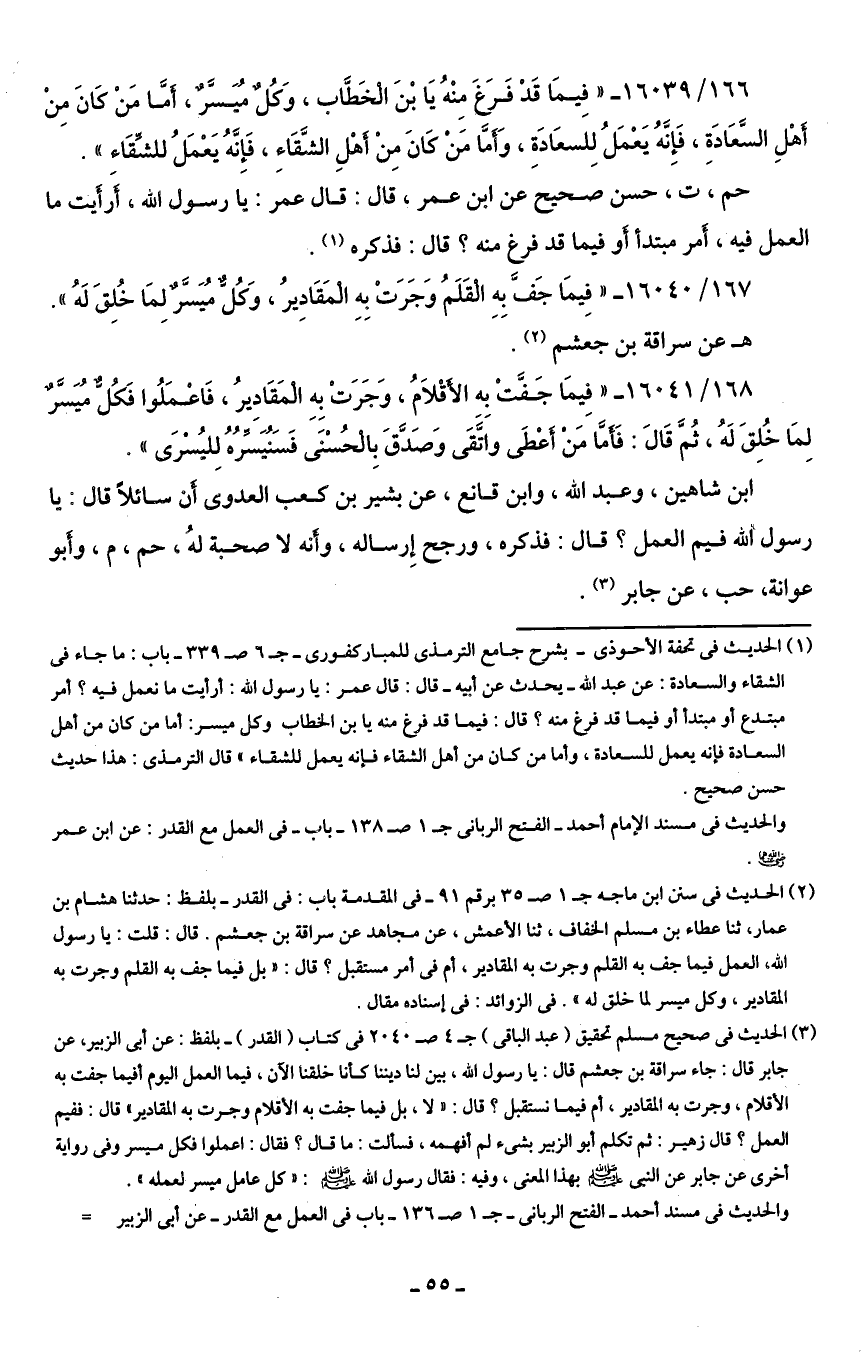 ١٦٦/ ١٦٠٣٩ـ « فِيمَا قَدْ فَرَغَ مِنْهُ يَا بْنَ الْخَطَّابِ ، وَكُلٌ مُيَسَّرٌ ، أَمَّا مَنْ كَانَ مِنْ
أَهْلِ السَّعَادَةِ ، فَإِنَّهُ يَعْمَلُ للسعَادَةِ ، وَأَمَّا مَنْ كَانَ مِنْ أَهْلِ الشَّقَاءِ ، فَإِنَّهُ يَعْمَلُ للشَّقَاءِ » .
حم ، ت ، حسن صحيح عن ابن عمر ، قال : قال عمر : يا رسول الله ، أرأيت ما
العمل فيه ، أمر مبتدأ أو فيما قد فرغ منه ؟ قال : فذكره (١) .
١٦٧/ ١٦٠٤٠ـ « فِيمَا جَفَّ بِهِ الْقَلَمُ وَجَرَتْ بِهِ الْمَقَادِيرُ ، وَكُلٌّ مُيَسَّرٌ لِمَا خُلِقَ لَهُ ».
هـ عن سراقة بن جعشم (٢) .
١٦٨/ ١٦٠٤١ـ « فِيمَا جَفَّتْ بِهِ الأَقْلاَمُ ، وَجَرَتْ بِهِ الْمَقَادِيرُ ، فَاعْمَلُوا فَكُلٌّ مُيَسَّرٌ
لِمَا خُلِقَ لَهُ ، ثُمَّ قَالَ : فَأَمَّا مَنْ أَعْطَى واتَّقَى وَصَدَّقَ بِالْحُسْنَى فَسَنُيَسِّرُهُ لِليُسْرَى » .
ابن شاهين ، وعبد الله ، وابن قانع ، عن بشير بن كعب العدوى أن سائلاً قال : يا
رسول الله فيم العمل ؟ قال : فذكره ، ورجح إرساله ، وأنه لا صحبة لهُ ، حم ، م ، وأبو
عوانة، حب ، عن جابر (٣) .
(١) الحديث فى تحفة الأحوذى - بشرح جامع الترمذى للمباركفورى ـ جـ ٦ صـ ٣٣٩ ـ باب : ما جاء فى
الشقاء والسعادة : عن عبد الله ـ يحدث عن أبيه ـ قال : قال عمر : يا رسول الله : أرأيت ما نعمل فيه ؟ أمر
مبتدع أو مبتدأ أو فيما قد فرغ منه ؟ قال : فيما قد فرغ منه يا بن الخطاب وكل ميسر: أما من كان من أهل
السعادة فإنه يعمل للسعادة ، وأما من كان من أهل الشقاء فإنه يعمل للشقاء » قال الترمذى : هذا حديث
حسن صحيح .
والحديث فى مسند الإمام أحمد ـ الفتح الربانى جـ ١ صـ ١٣٨ ـ باب ـ فى العمل مع القدر : عن ابن عمر
رضي الله عنهما .
(٢) الحديث فى سنن ابن ماجه جـ ١ صـ ٣٥ برقم ٩١ ـ فى المقدمة باب : فى القدر ـ بلفظ : حدثنا هشام بن
عمار، ثنا عطاء بن مسلم الخفاف ، ثنا الأعمش ، عن مجاهد عن سراقة بن جعشم . قال : قلت : يا رسول
الله، العمل فيما جف به القلم وجرت به المقادير ، أم فى أمر مستقبل ؟ قال : « بل فيما جف به القلم وجرت به
المقادير ، وكل ميسر لما خلق له » . فى الزوائد : فى إسناده مقال .
(٣) الحديث فى صحيح مسلم تحقيق ( عبد الباقى ) جـ ٤ صـ ٢٠٤٠ فى كتاب ( القدر ) ـ بلفظ : عن أبى الزبير، عن
جابر قال : جاء سراقة بن جعشم قال : يا رسول الله ، بين لنا ديننا كأنا خلقنا الآن ، فيما العمل اليوم أفيما جفت به
الأقلام ، وجرت به المقادير ، أم فيما نستقبل ؟ قال : « لا ، بل فيما جفت به الأقلام وجرت به المقادير» قال : ففيم
العمل ؟ قال زهير : ثم تكلم أبو الزبير بشىء لم أفهمه ، فسألت : ما قال ؟ فقال : اعملوا فكل ميسر وفى رواية
أخرى عن جابر عن النبى ﷺ بهذا المعنى ، وفيه : فقال رسول الله ﷺ : « كل عامل ميسر لعمله » .
والحديث فى مسند أحمد ـ الفتح الربانى ـ جـ ١ صـ ١٣٦ ـ باب فى العمل مع القدر ـ عن أبى الزبير =
ـ ٥٥ ـ